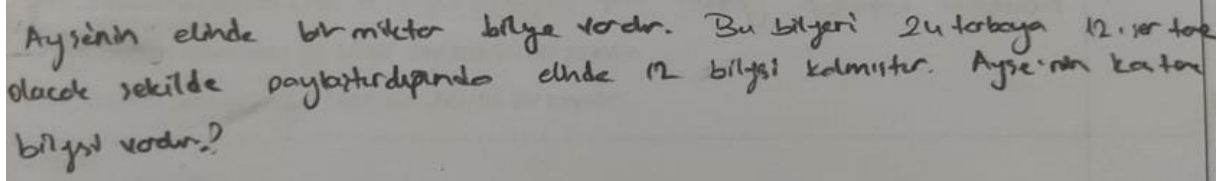 Ayşenin elinde bir miktar bilye vardır. Bu bilyeri 24 torbaya 12.şer tane
olacak şekilde paylaştırdığında elinde 12 bilyesi kalmıştır. Ayşe'nin kaç tane
bilyesi vardır?